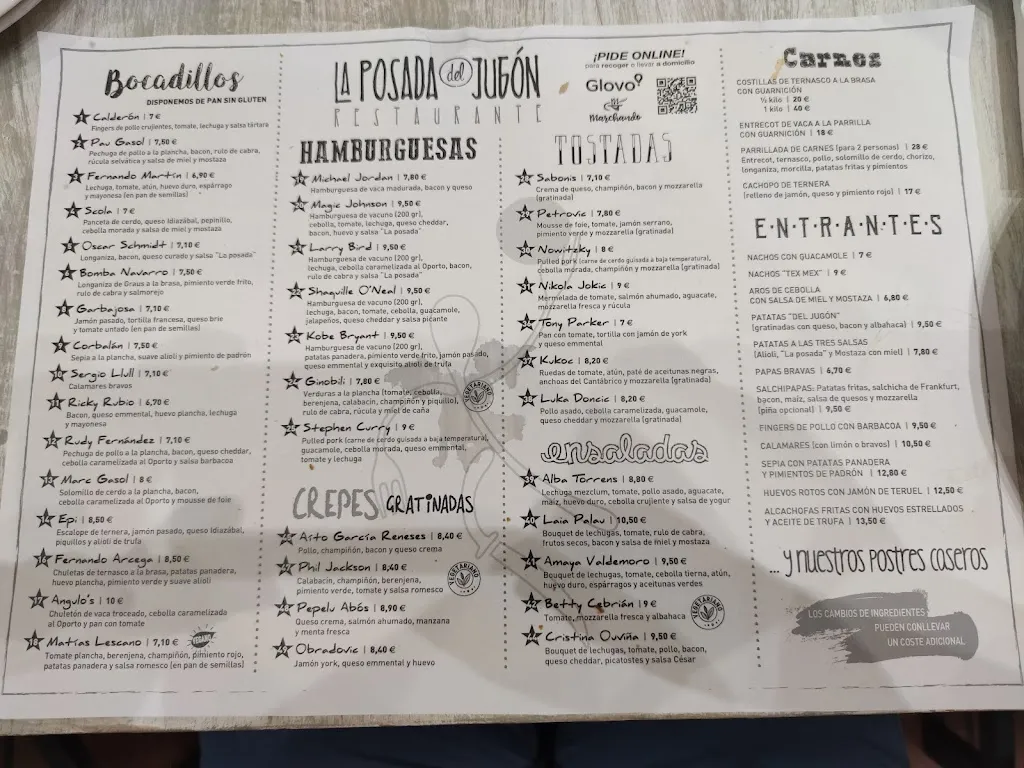 Bocadillos
DISPONEMOS DE PAN SIN GLUTEN
Calderón | 7 €
Fingers de pollo crujientes, tomate, lechuga y salsa tártara
Pau Gasol | 7,50 €
Pechuga de pollo a la plancha, bacon, rulo de cabra,
rúcula selvática y salsa de miel y mostaza
Fernando Martín | 6,90 €
Lechuga, tomate, atún, huevo duro, espárrago
y mayonesa (en pan de semillas)
Scola | 7 €
Panceta de cerdo, queso Idiazábal, pepinillo,
cebolla morada y salsa de miel y mostaza
Oscar Schmidt | 7,10 €
Longaniza, bacon, queso curado y salsa "La posada"
Bomba Navarro | 7,50 €
Longaniza de Graus a la brasa, pimiento verde frito,
rulo de cabra y salmorejo
Garbajosa | 7,10 €
Jamón pasado, tortilla francesa, queso brie
y tomate untado (en pan de semillas)
Corbalán | 7,50 €
Sepia a la plancha, suave alioli y pimiento de padrón
Sergio Llull | 7,10 €
Calamares bravas
Ricky Rubio | 6,70 €
Bacon, queso emmental, huevo plancha, lechuga
y mayonesa
Rudy Fernández | 7,10 €
Pechuga de pollo a la plancha, bacon, queso cheddar,
cebolla caramelizada al Oporto y salsa barbacoa
Marc Gasol | 8 €
Solomillo de cerdo a la plancha, bacon,
cebolla caramelizada al Oporto y mousse de foie
Epi | 8,50 €
Escalope de ternera, jamón pasado, queso Idiazábal,
piquillos y alioli de trufa
Fernando Arcega | 8,50 €
Chuletas de ternasco a la brasa, patatas panadera,
huevo plancha, pimiento verde y suave alioli
Angulo's | 10 €
Chuletón de vaca troceado, cebolla caramelizada
al Oporto y pan con tomate
Matías Lescano | 7,10 €
VEGANO
Tomate plancha, berenjena, champiñón, pimiento rojo,
patatas panadera y salsa romesco (en pan de semillas)
LA POSADA del JUGÓN
RESTAURANTE
¡PIDE ONLINE!
para recoger o llevar a domicilio
Glovo
Marchando
HAMBURGUESAS
Michael Jordan | 7,80 €
Hamburguesa de vaca madurada, bacon y queso
Magic Johnson | 9,50 €
Hamburguesa de vacuno (200 gr),
cebolla, tomate, lechuga, queso cheddar,
bacon, huevo y salsa "La posada"
Larry Bird | 9,50 €
Hamburguesa de vacuno (200 gr),
lechuga, cebolla caramelizada al Oporto, bacon,
rulo de cabra y salsa César
Shaquille O'Neal | 9,50 €
Hamburguesa de vacuno (200 gr),
lechuga, bacon, tomate, cebolla, guacamole,
jalapeños, queso cheddar y salsa picante
Kobe Bryant | 9,50 €
Hamburguesa de vacuno (200 gr),
patatas panadera, pimiento verde frito, jamón pasado,
queso emmental y exquisito alioli de trufa
Ginobili | 7,80 €
Verduras a la plancha (tomate, cebolla,
berenjena, calabacín, champiñón y piquillo),
rulo de cabra, rúcula y miel de caña
VEGETARIANO
Stephen Curry | 9 €
Pulled pork (carne de cerdo guisada a baja temperatura),
guacamole, cebolla morada, queso emmental,
tomate y lechuga
CREPES GRATINADAS
Aito García Reneses | 8,40 €
Pollo, champiñón, bacon y queso crema
Phil Jackson | 8,40 €
Calabacín, champiñón, berenjena,
pimiento verde, tomate y salsa romesco
VEGETARIANO
Pepelu Abós | 8,90 €
Queso crema, salmón ahumado, manzana
y menta fresca
Obradovic | 8,40 €
Jamón york, queso emmental y huevo
TOSTADAS
Sabonis | 7,10 €
Crema de queso, champiñón, bacon y mozzarella
(gratinada)
Petrovic | 7,80 €
Mousse de foie, tomate, jamón serrano,
pimiento verde y mozzarella (gratinada)
Nowitzky | 8 €
Pulled pork (carne de cerdo guisada a baja temperatura),
cebolla morada, champiñón y mozzarella (gratinada)
Nikola Jokic | 9 €
Mermelada de tomate, salmón ahumado, aguacate,
mozzarella fresca y rúcula
Tony Parker | 7 €
Pan con tomate, tortilla con jamón de york
y queso emmental
Kukoc | 8,20 €
Ruedas de tomate, atún, paté de aceitunas negras,
anchoas del Cantábrico y mozzarella (gratinada)
Luka Doncic | 8,20 €
Pollo asado, cebolla caramelizada, guacamole,
queso cheddar y mozzarella (gratinada)
ensaladas
Alba Torrens | 8,80 €
Lechuga mezclum, tomate, pollo asado, aguacate,
maíz, huevo duro, cebolla crujiente y salsa de yogur
Laia Palau | 10,50 €
Bouquet de lechugas, tomate, rulo de cabra,
frutos secos, bacon y salsa de miel y mostaza
Amaya Valdemoro | 9,50 €
Bouquet de lechugas, tomate, cebolla tierna, atún,
huevo duro, espárragos y aceitunas verdes
Betty Cebrián | 9 €
Tomate, mozzarella fresca y albahaca
VEGETARIANO
Cristina Ouviña | 9,50 €
Bouquet de lechugas, tomate, pollo, bacon,
queso cheddar, picatostes y salsa César
Carnes
COSTILLAS DE TERNASCO A LA BRASA
CON GUARNICIÓN
½ kilo | 20 €
1 kilo | 40 €
ENTRECOT DE VACA A LA PARRILLA
CON GUARNICIÓN | 18 €
PARRILLADA DE CARNES (para 2 personas) | 28 €
Entrecot, ternasco, pollo, solomillo de cerdo, chorizo,
longaniza, morcilla, patatas fritas y pimientos
CACHOPO DE TERNERA
(relleno de jamón, queso y pimiento rojo) | 17 €
E·N·T·R·A·N·T·E·S
NACHOS CON GUACAMOLE | 7 €
NACHOS "TEX MEX" | 9 €
AROS DE CEBOLLA
CON SALSA DE MIEL Y MOSTAZA | 6,80 €
PATATAS "DEL JUGÓN"
(gratinadas con queso, bacon y albahaca) | 9,50 €
PATATAS A LAS TRES SALSAS
(Alioli, "La posada" y Mostaza con miel) | 7,80 €
PAPAS BRAVAS | 6,70 €
SALCHIPAPAS: Patatas fritas, salchicha de Frankfurt,
bacon, maíz, salsa de quesos y mozzarella
(piña opcional) | 9,50 €
FINGERS DE POLLO CON BARBACOA | 9,50 €
CALAMARES (con limón o bravos) | 10,50 €
SEPIA CON PATATAS PANADERA
Y PIMIENTOS DE PADRÓN | 12,80 €
HUEVOS ROTOS CON JAMÓN DE TERUEL | 12,50 €
ALCACHOFAS FRITAS CON HUEVOS ESTRELLADOS
Y ACEITE DE TRUFA | 13,50 €
... y nuestros postres caseros
LOS CAMBIOS DE INGREDIENTES
PUEDEN CONLLEVAR
UN COSTE ADICIONAL